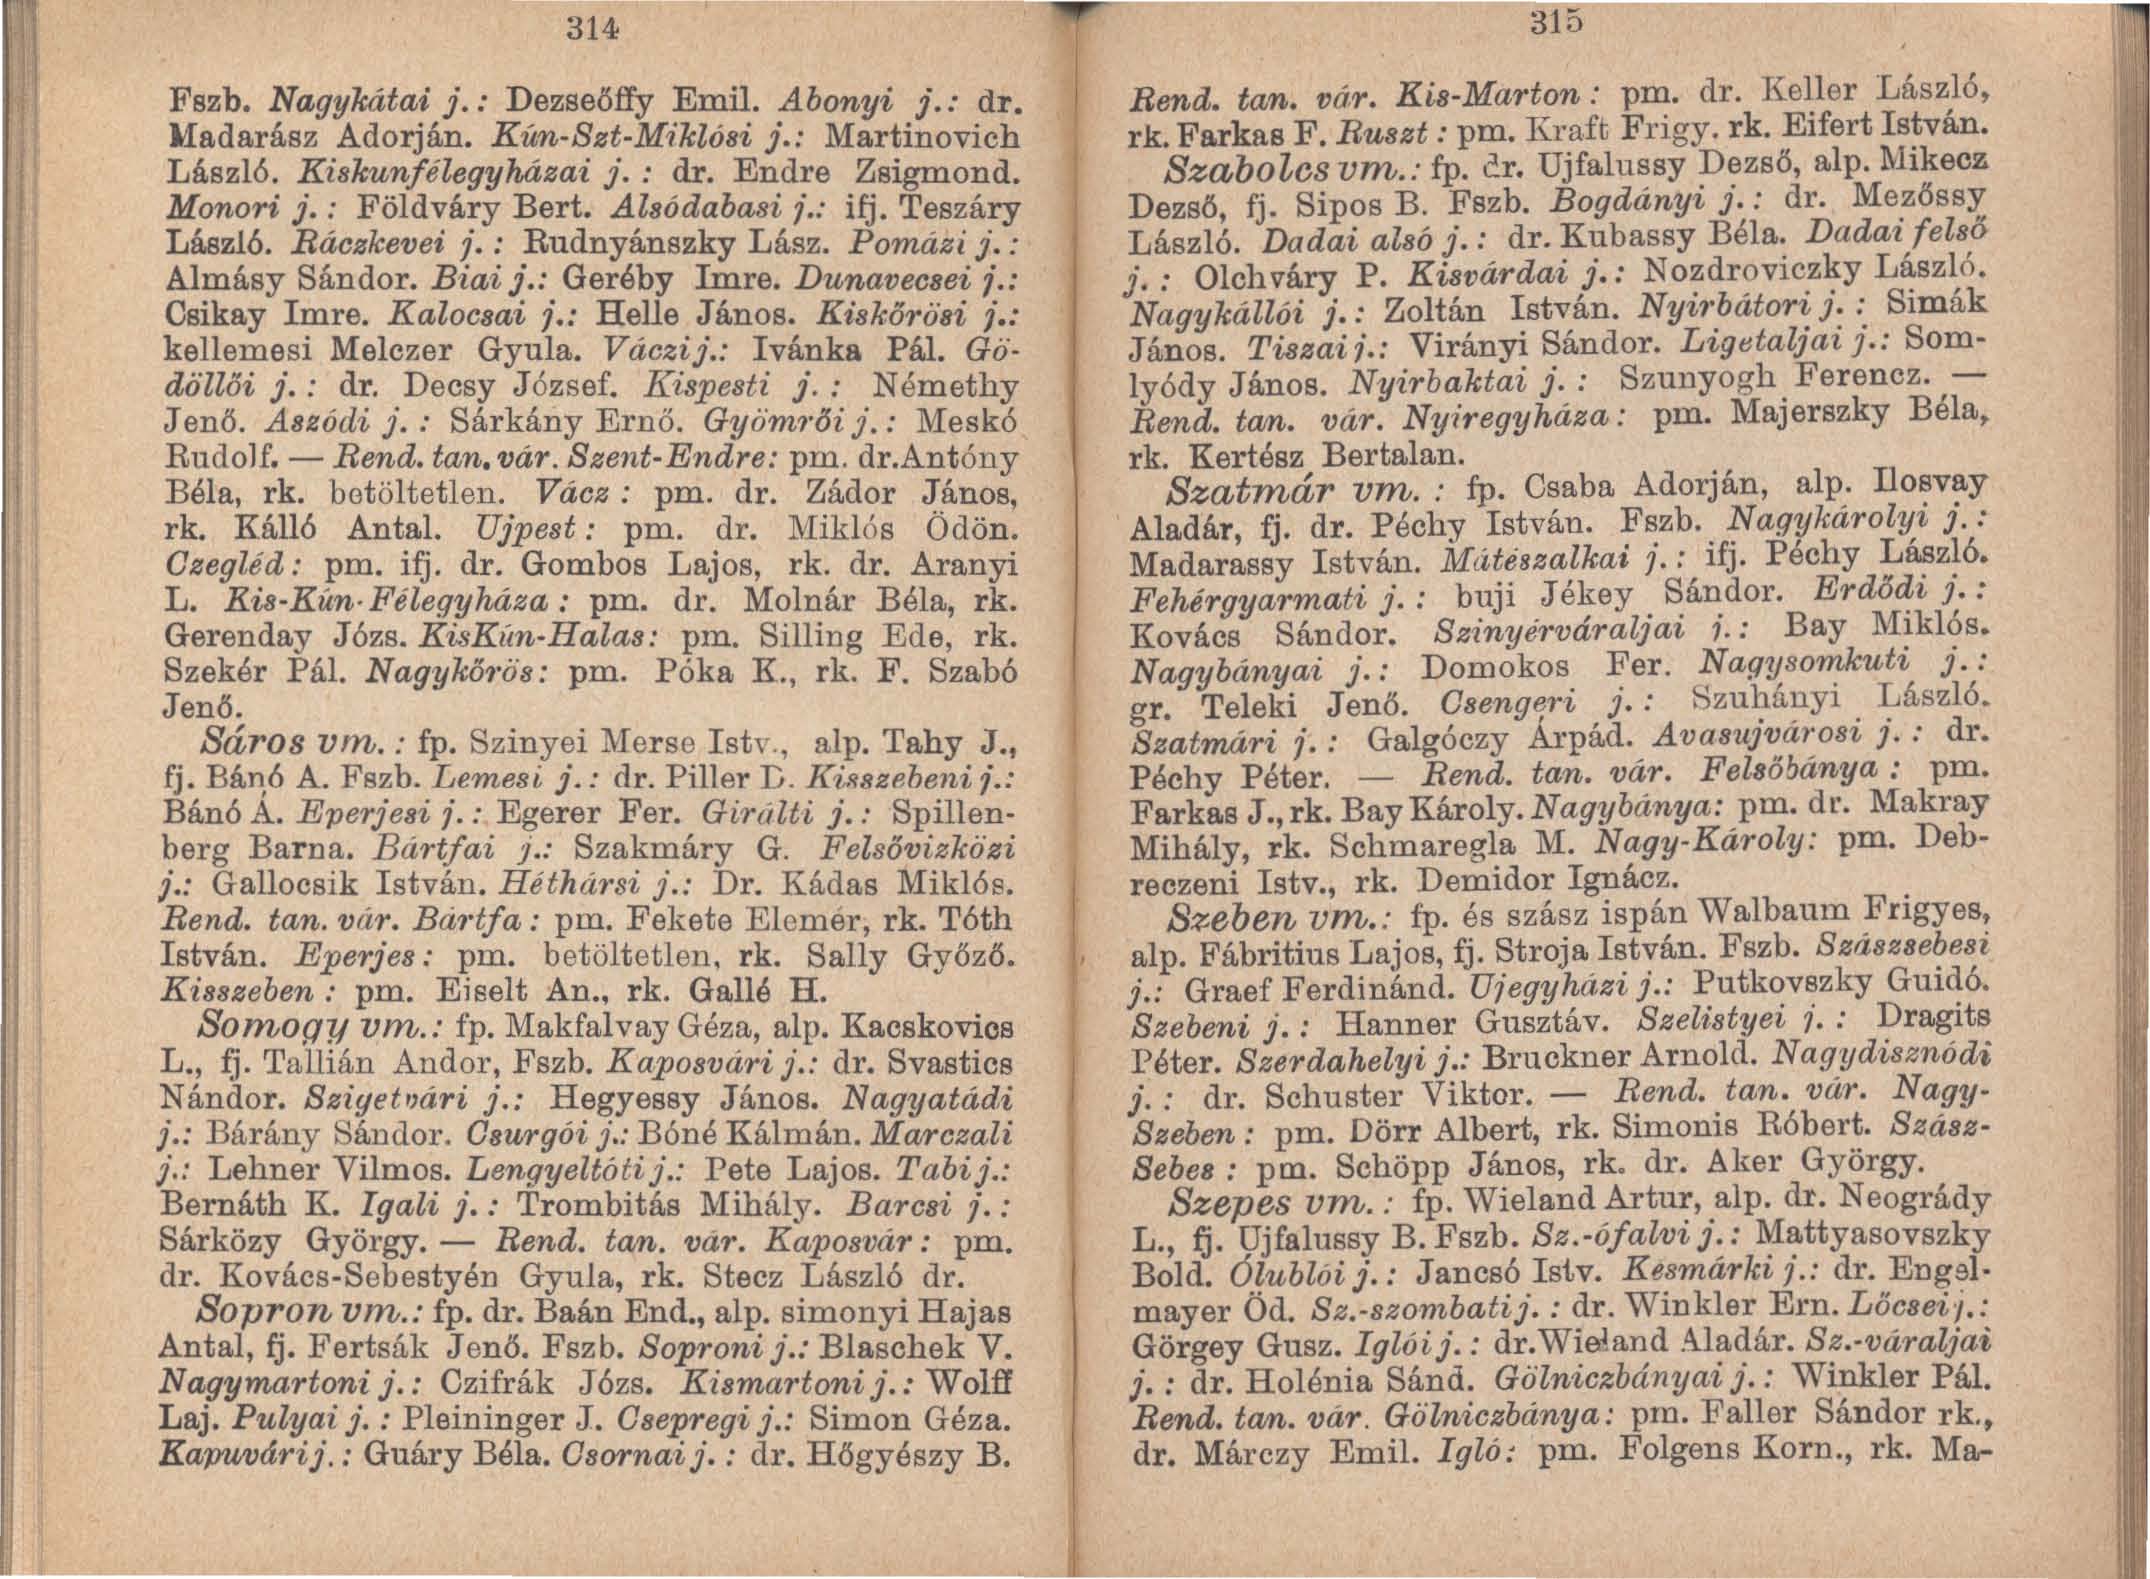 314
Fszb. Nagykátai j.: Dezseőffy Emil. Abonyi j.: dr.
Madarász Adorján. Kún-Szt-Miklósi j.: Martinovich
László. Kiskunfélegyházai j. : dr. Endre Zsigmond.
Monori j. : Földváry Bert. Alsódabasi j.: ifj. Teszáry
László. Ráczkevei j. : Rudnyánszky Lász. Pomázi j. :
Almásy Sándor. Biai j.: Geréby Imre. Dunavecsei j.:
Csikay Imre. Kalocsai j.: Helle János. Kiskőrösi j.:
kellemesi Melczer Gyula. Váczi j.: Ivánka Pál. Gö-
döllői j. : dr. Decsy József. Kispesti j. : Némethy
Jenő. Aszódi j. : Sárkány Ernő. Gyömrői j. : Meskó
Rudolf. — Rend. tan. vár. Szent-Endre: pm. dr. Antóny
Béla, rk. betöltetlen. Vácz : pm. dr. Zádor János,
rk. Kálló Antal. Ujpest : pm. dr. Miklós Ödön.
Czegléd : pm. ifj. dr. Gombos Lajos, rk. dr. Aranyi
L. Kis-Kún-Félegyháza : pm. dr. Molnár Béla, rk.
Gerenday Józs. KisKún-Halas: pm. Silling Ede, rk.
Szekér Pál. Nagykőrös: pm. Póka K., rk. F. Szabó
Jenő.
Sáros vm. : fp. Szinyei Merse Istv., alp. Tahy J.,
fj. Bánó A. Fszb. Lemesi j. : dr. Piller D. Kisszebeni j.:
Bánó Á. Eperjesi j. : Egerer Fer. Girálti j. : Spillen-
berg Barna. Bártfai j.: Szakmáry G. Felsővizközi
j.: Gallocsik István. Héthársi j.: Dr. Kádas Miklós.
Rend. tan. vár. Bártfa : pm. Fekete Elemér, rk. Tóth
István. Eperjes : pm. betöltetlen, rk. Sally Győző.
Kisszeben : pm. Eiselt An., rk. Gallé H.
Somogy vm. : fp. Makfalvay Géza, alp. Kacskovics
L., fj. Tallián Andor, Fszb. Kaposvári j.: dr. Svastics
Nándor. Szigetvári j.: Hegyessy János. Nagyatádi
j.: Bárány Sándor. Csurgói j.: Bóné Kálmán. Marczali
j.: Lehner Vilmos. Lengyeltóti j.: Pete Lajos. Tabi j.:
Bernáth K. Igali j. : Trombitás Mihály. Barcsi j. :
Sárközy György. — Rend. tan. vár. Kaposvár : pm.
dr. Kovács-Sebestyén Gyula, rk. Stecz László dr.
Sopron vm. : fp. dr. Baán End., alp. simonyi Hajas
Antal, fj. Fertsák Jenő. Fszb. Soproni j.: Blaschek V.
Nagymartoni j. : Czifrák Józs. Kismartoni j. : Wolff
Laj. Pulyai j. : Pleininger J. Csepregi j.: Simon Géza.
Kapuvári j. : Guáry Béla. Csornai j. : dr. Hőgyészy B.
315
Rend. tan. vár. Kis-Marton : pm. dr. Keller László,
rk. Farkas F. Ruszt : pm. Kraft Frigy. rk. Eifert István.
Szabolcs vm. : fp. dr. Ujfalussy Dezső, alp. Mikecz
Dezső, fj. Sipos B. Fszb. Bogdányi j. : dr. Mezőssy
László. Dadai alsó j. : dr. Kubassy Béla. Dadai felső
j. : Olchváry P. Kisvárdai j. : Nozdroviczky László.
Nagykállói j. : Zoltán István. Nyirbátori j. : Simák
János. Tiszai j.: Virányi Sándor. Ligetaljai j.: Som-
lyódy János. Nyirbaktai j. : Szunyogh Ferencz. —
Rend. tan. vár. Nyiregyháza : pm. Majerszky Béla,
rk. Kertész Bertalan.
Szatmár vm. : fp. Csaba Adorján, alp. Ilosvay
Aladár, fj. dr. Péchy István. Fszb. Nagykárolyi j. :
Madarassy István. Mátészalkai j. : ifj. Péchy László.
Fehérgyarmati j. : buji Jékey Sándor. Erdődi j. :
Kovács Sándor. Szinyérváraljai j. : Bay Miklós.
Nagybányai j. : Domokos Fer. Nagysomkuti j. :
gr. Teleki Jenő. Csengeri j. : Szuhányi László.
Szatmári j. : Galgóczy Árpád. Avasujvárosi j. : dr.
Péchy Péter. — Rend. tan. vár. Felsőbánya : pm.
Farkas J., rk. Bay Károly. Nagybánya: pm. dr. Makray
Mihály, rk. Schmaregla M. Nagy-Károly: pm. Deb-
reczeni Istv., rk. Demidor Ignácz.
Szeben vm. : fp. és szász ispán Walbaum Frigyes,
alp. Fábritius Lajos, fj. Stroja István. Fszb. Szászsebesi
j.: Graef Ferdinánd. Ujegyházi j.: Putkovszky Guidó.
Szebeni j. : Hanner Gusztáv. Szelistyei j. : Dragits
Péter. Szerdahelyi j.: Bruckner Arnold. Nagydisznódi
j. : dr. Schuster Viktor. — Rend. tan. vár. Nagy-
Szeben : pm. Dörr Albert, rk. Simonis Róbert. Szász-
Sebes : pm. Schöpp János, rk. dr. Aker György.
Szepes vm. : fp. Wieland Artur, alp. dr. Neogrády
L., fj. Ujfalussy B. Fszb. Sz.-ófalvi j. : Mattyasovszky
Bold. Ólublói j. : Jancsó Istv. Késmárki j.: dr. Engel-
mayer Öd. Sz.-szombati j. : dr. Winkler Ern. Lőcsei j. :
Görgey Gusz. Iglói j. : dr. Wieland Aladár. Sz.-váraljai
j. : dr. Holénia Sánd. Gölniczbányai j. : Winkler Pál.
Rend. tan. vár. Gölniczbánya : pm. Faller Sándor rk.,
dr. Márczy Emil. Igló : pm. Folgens Korn., rk. Ma-